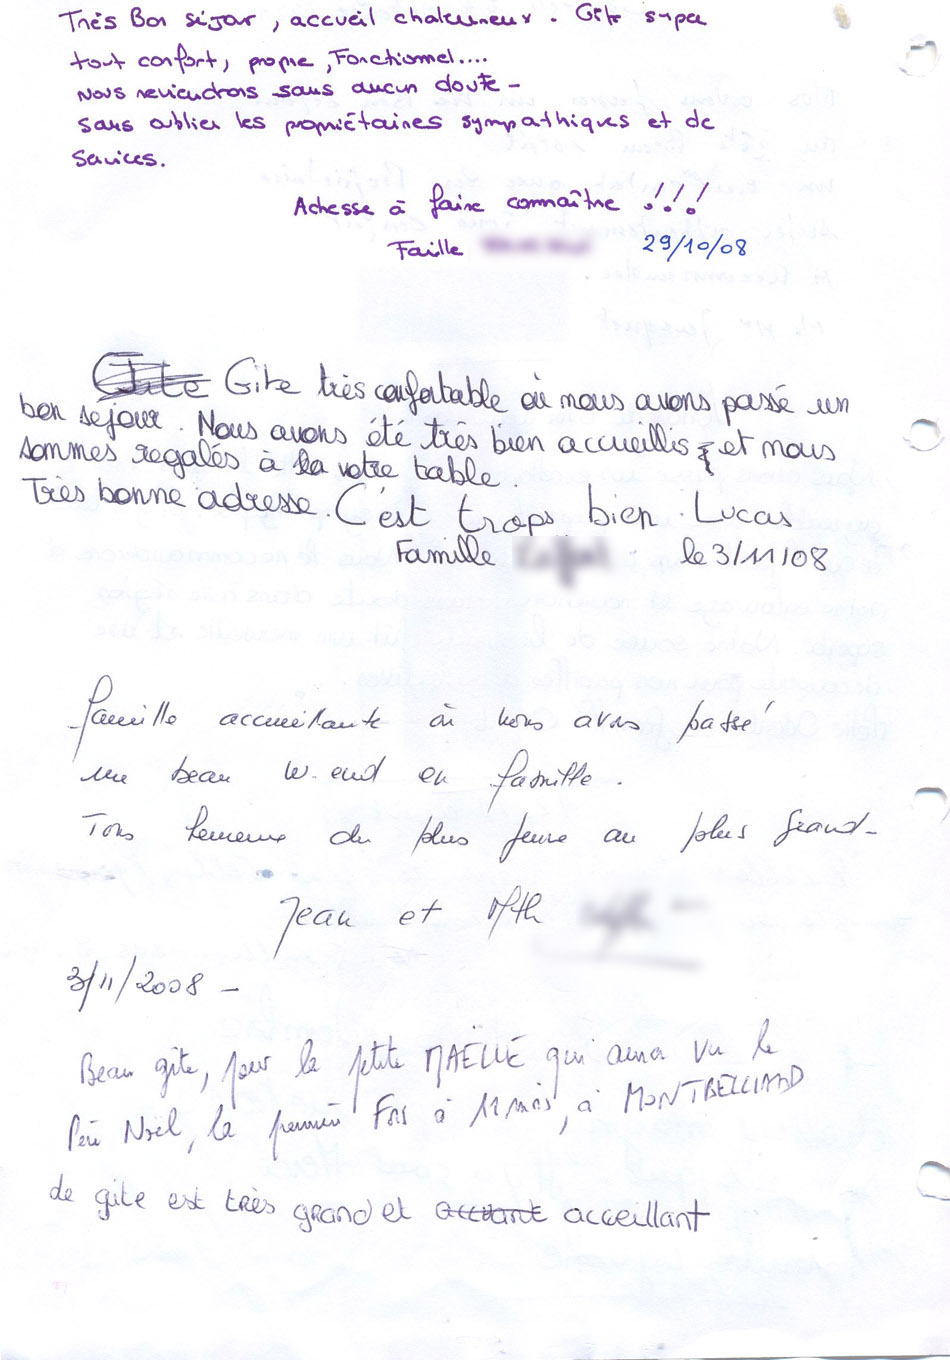 Très Bon séjour, accueil chaleureux. Gîte super
tout confort, propre, Fonctionnel....
Nous reviendrons sans aucun doute -
Sans oublier les propriétaires sympathiques et de
Services.
Adresse à faire connaître !!!!
Faille 29/10/08
Gite Gite très confortable où nous avons passé un
bon sejour. Nous avons été très bien accueillis et nous
sommes regalés à la votre table.
Très bonne adresse C'est trops bien. Lucas
Famille le 3/11/08
famille accueillante où nous avons passé
un beau w.end en famille.
Tous heureux du plus jeune au plus Grand-
Jean et
3/11/2008 -
Beau gîte, pour la petite MAËLLE qui aura vu le
Père Noël, la première Fois à 11 mois, à MONTBELLIARD
de gite est très grand et acceillant